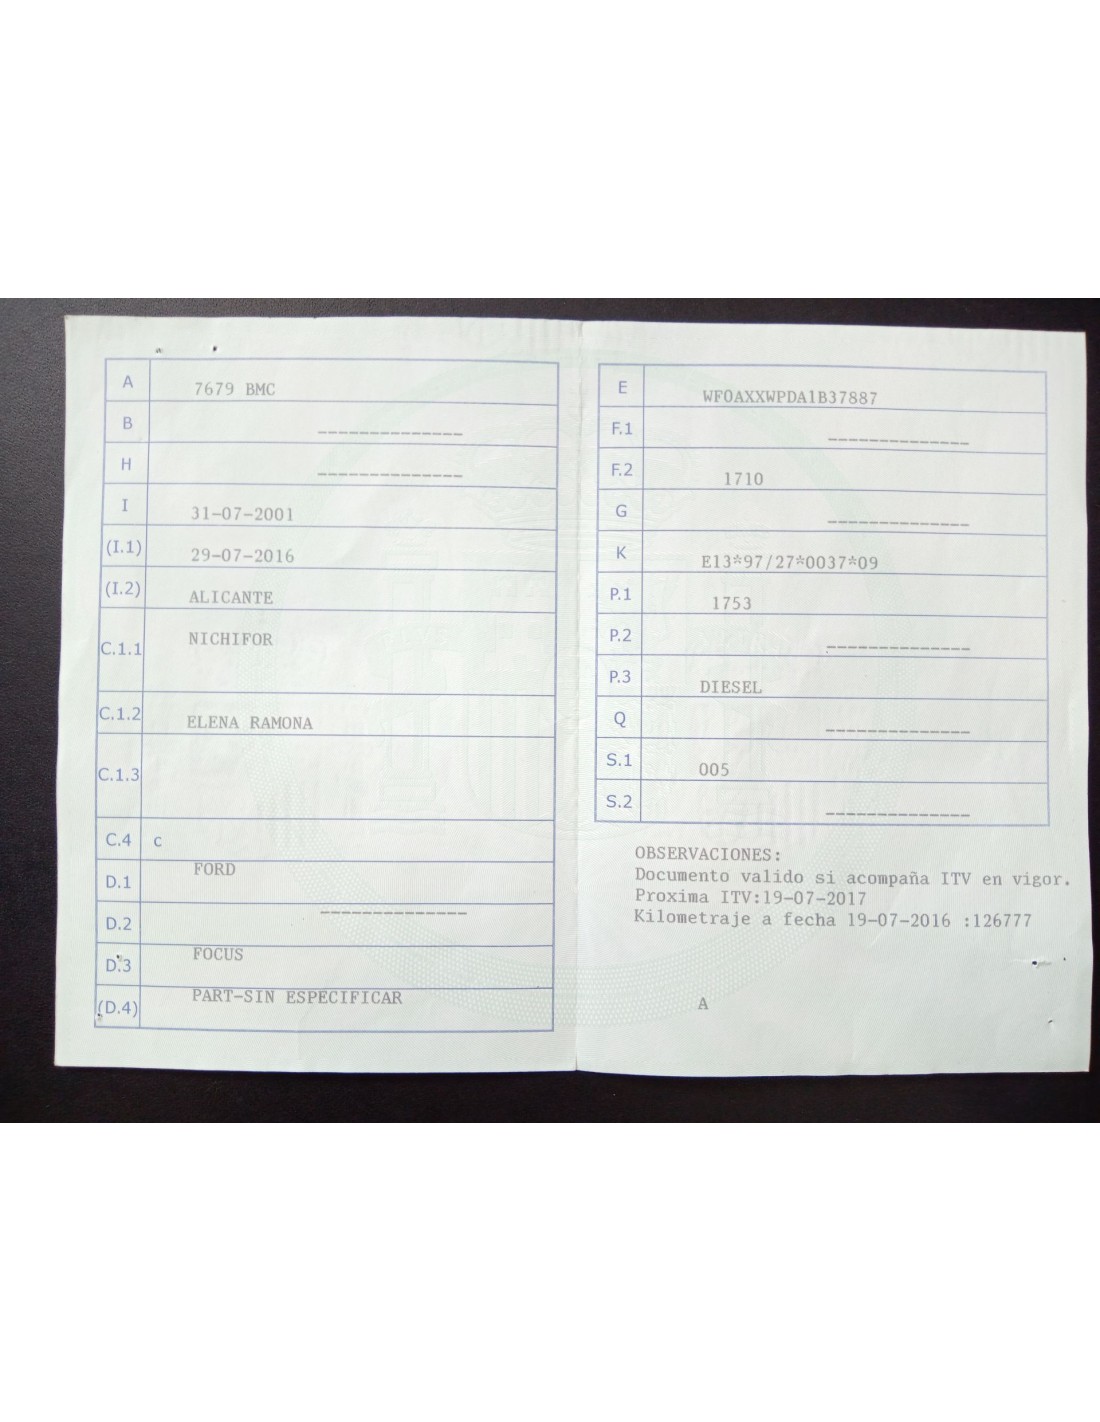 A 7679 BMC
B --------------
H --------------
I 31-07-2001
(I.1) 29-07-2016
(I.2) ALICANTE
C.1.1 NICHIFOR
C.1.2 ELENA RAMONA
C.1.3
C.4 c
D.1 FORD
D.2 --------------
D.3 FOCUS
(D.4) PART-SIN ESPECIFICAR
E WF0AXXWPDA1B37887
F.1 --------------
F.2 1710
G --------------
K E13*97/27*0037*09
P.1 1753
P.2 --------------
P.3 DIESEL
Q --------------
S.1 005
S.2 --------------
OBSERVACIONES:
Documento valido si acompaña ITV en vigor.
Proxima ITV:19-07-2017
Kilometraje a fecha 19-07-2016 :126777
A